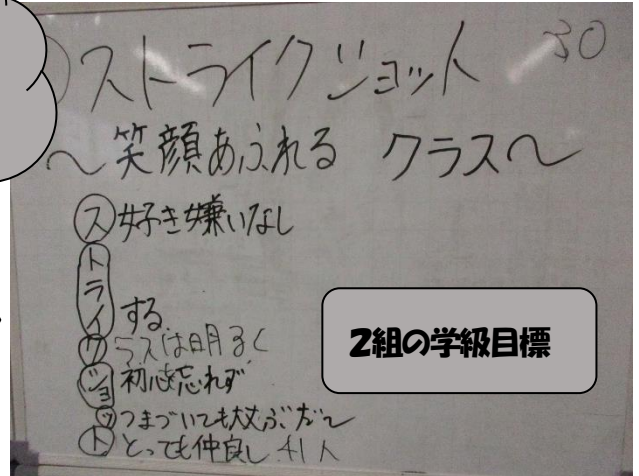 ストライクショット 30
～笑顔あふれる クラス～
ス 好き嫌いなし
トライ する
クラスは明るく
ショ 初心忘れず
ッ つまづいても大丈ぶだ～
ト とっても仲良し 41人
2組の学級目標